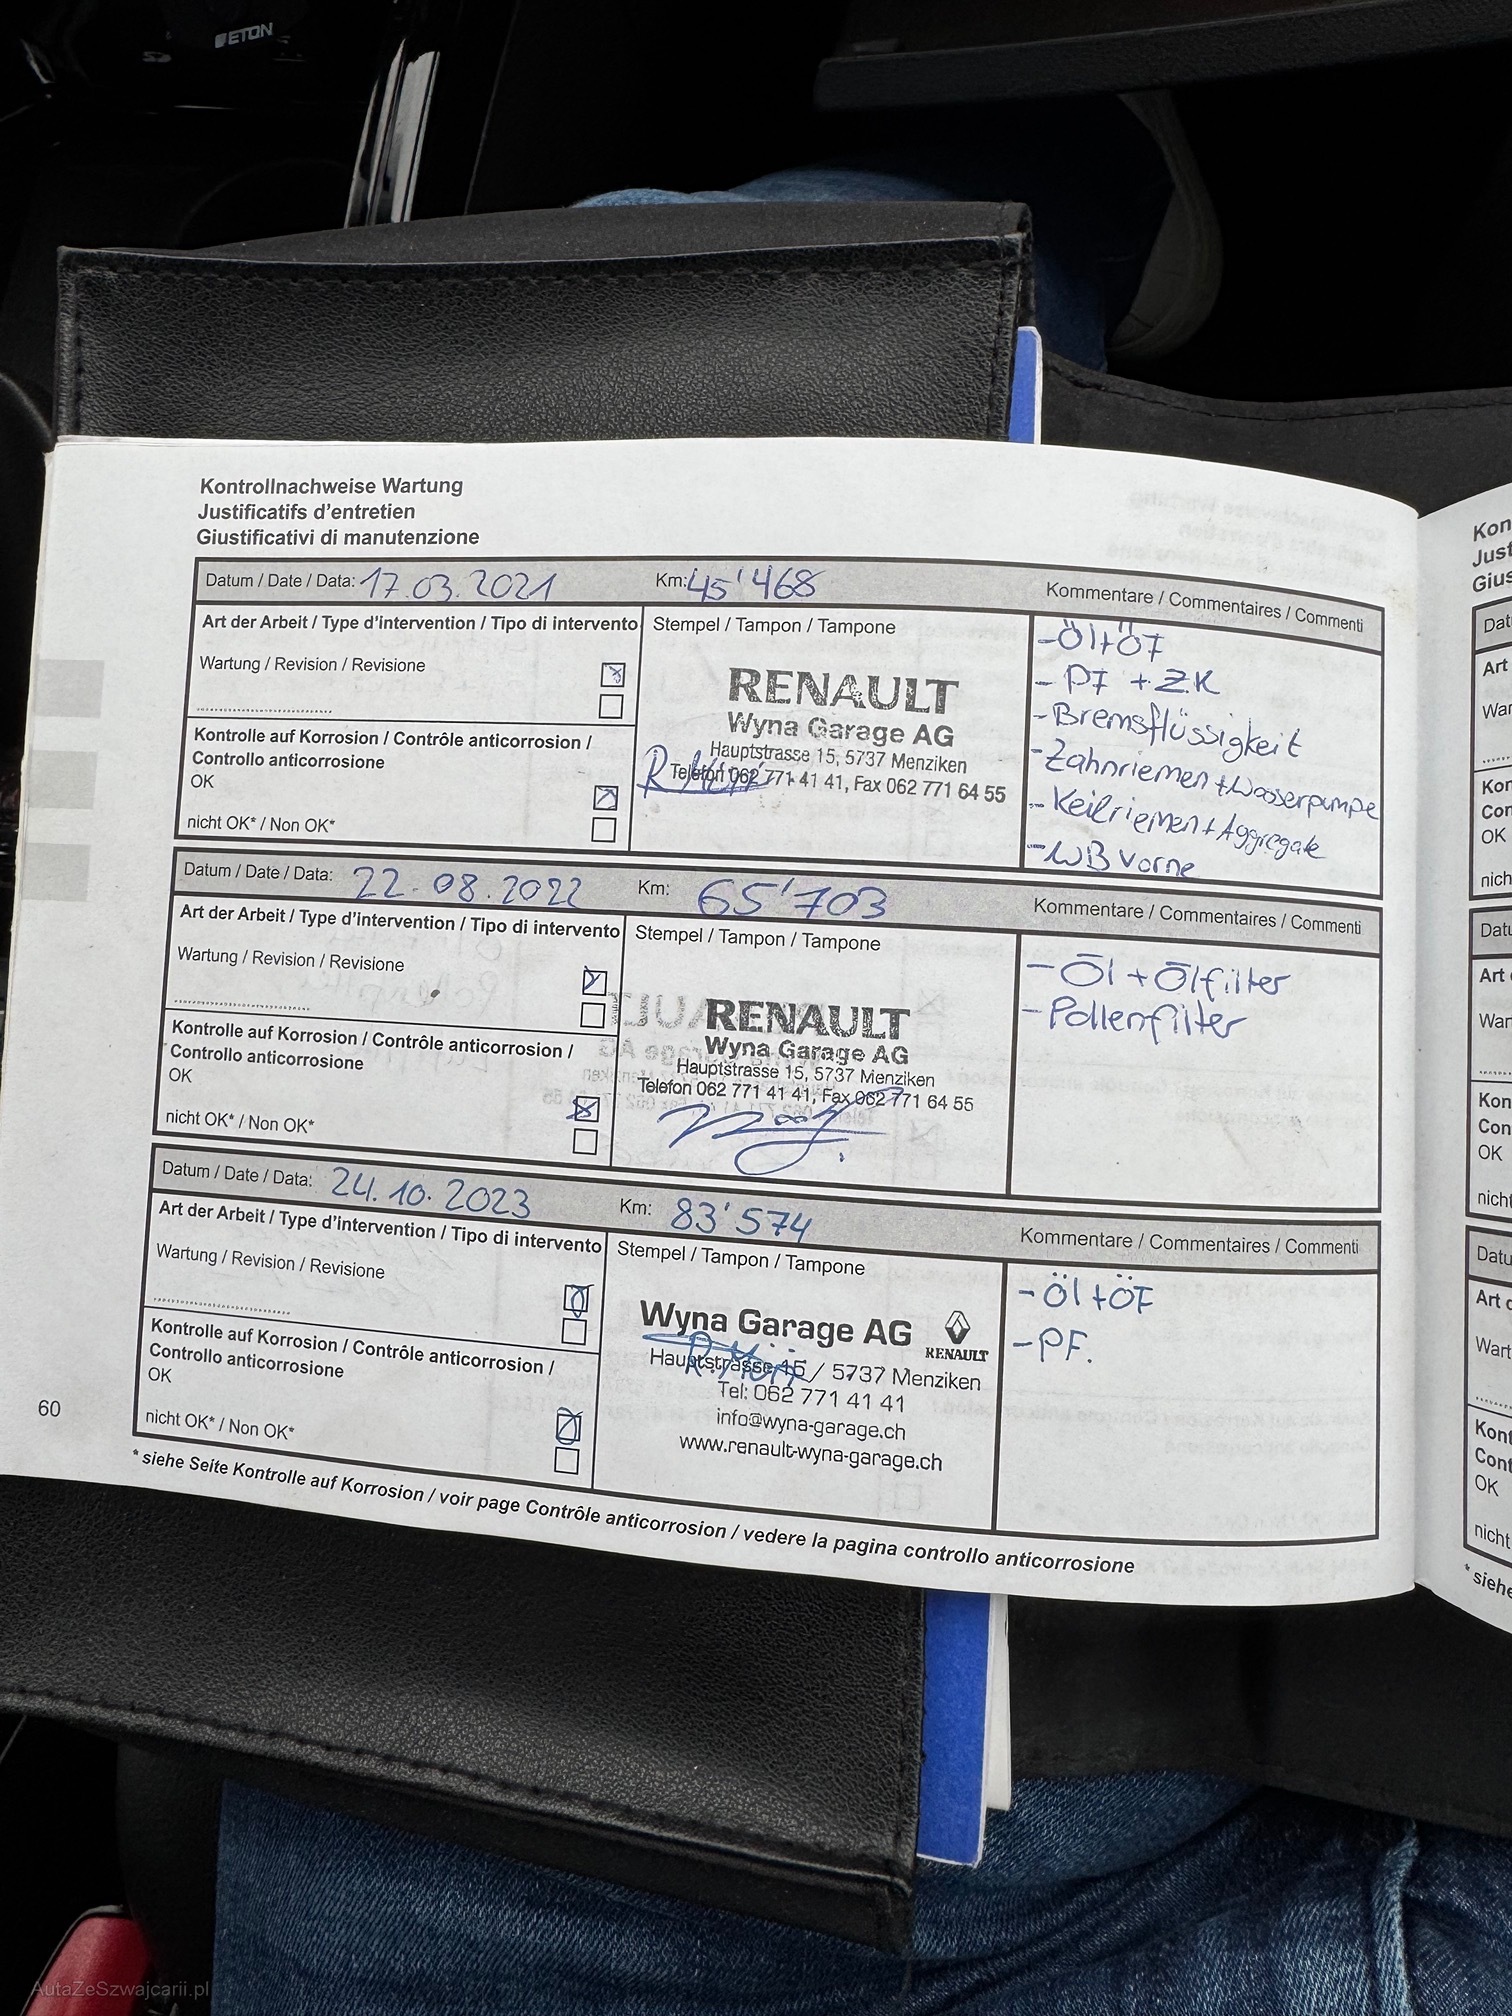 ETON
Kontrollnachweise Wartung
Justificatifs d'entretien
Giustificativi di manutenzione
Datum / Date / Data: 17.03.2021 Km: 45'468 Kommentare / Commentaires / Commenti
Art der Arbeit / Type d'intervention / Tipo di intervento
Wartung / Revision / Revisione
Kontrolle auf Korrosion / Contrôle anticorrosion /
Controllo anticorrosione
OK
nicht OK* / Non OK*
Stempel / Tampon / Tampone
RENAULT
Wyna Garage AG
Hauptstrasse 15, 5737 Menziken
Telefon 062 771 41 41, Fax 062 771 64 55
- Öl+ÖF
- PF + Z.K
- Bremsflüssigkeit
- Zahnriemen + Wasserpumpe
- Keilriemen + Aggregate
- WB vorne
Datum / Date / Data: 22.08.2022 Km: 65'703 Kommentare / Commentaires / Commenti
Art der Arbeit / Type d'intervention / Tipo di intervento
Wartung / Revision / Revisione
Kontrolle auf Korrosion / Contrôle anticorrosion /
Controllo anticorrosione
OK
nicht OK* / Non OK*
Stempel / Tampon / Tampone
RENAULT
Wyna Garage AG
Hauptstrasse 15, 5737 Menziken
Telefon 062 771 41 41, Fax 062 771 64 55
- Öl + Ölfilter
- Pollenfilter
Datum / Date / Data: 24.10.2023 Km: 83'574 Kommentare / Commentaires / Commenti
Art der Arbeit / Type d'intervention / Tipo di intervento
Wartung / Revision / Revisione
Kontrolle auf Korrosion / Contrôle anticorrosion /
Controllo anticorrosione
OK
nicht OK* / Non OK*
Stempel / Tampon / Tampone
Wyna Garage AG
RENAULT
Hauptstrasse 15 / 5737 Menziken
Tel: 062 771 41 41
info@wyna-garage.ch
www.renault-wyna-garage.ch
- Öl+ÖF
- PF.
60
* siehe Seite Kontrolle auf Korrosion / voir page Contrôle anticorrosion / vedere la pagina controllo anticorrosione
AutaZeSzwajcarii.pl